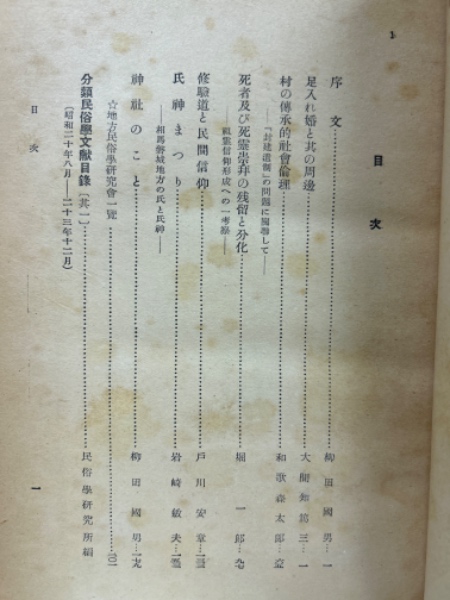 目次
序文……柳田國男…一
足入れ婚と其の周邊……大間知篤三…一
村の傳承的社會倫理……和歌森太郎…
——「封建遺制」の問題に關聯して——
死者及び死靈崇拜の残留と分化……堀一郎…
——祖靈信仰形成への一考察——
修驗道と民間信仰……戸川安章…
氏神まつり……岩崎敏夫…
——相馬磐城地方の氏と氏神——
神社のこと……柳田國男…
☆地方民俗學研究會一覽……
分類民俗學文獻目錄〔其一〕……民俗學研究所編
〔昭和二十年八月——二十三年十二月〕
目次
一
1